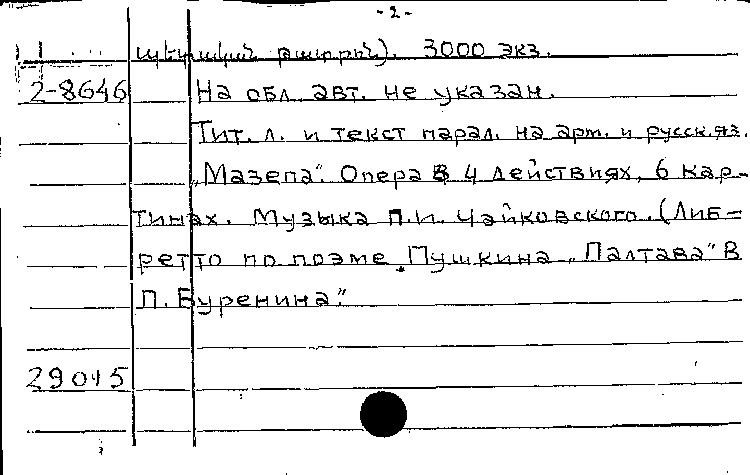 -2-
պետական թատրոն). 3000 экз.
2-8646 На обл. авт. не указан.
Тит. л. и текст парал. на арм. и русск. яз.
„Мазепа". Опера в 4 действиях, 6 кар-
тинах. Музыка П.И. Чайковского. (Либ-
ретто по поэме Пушкина „Палтава" В
П. Буренина."
29015